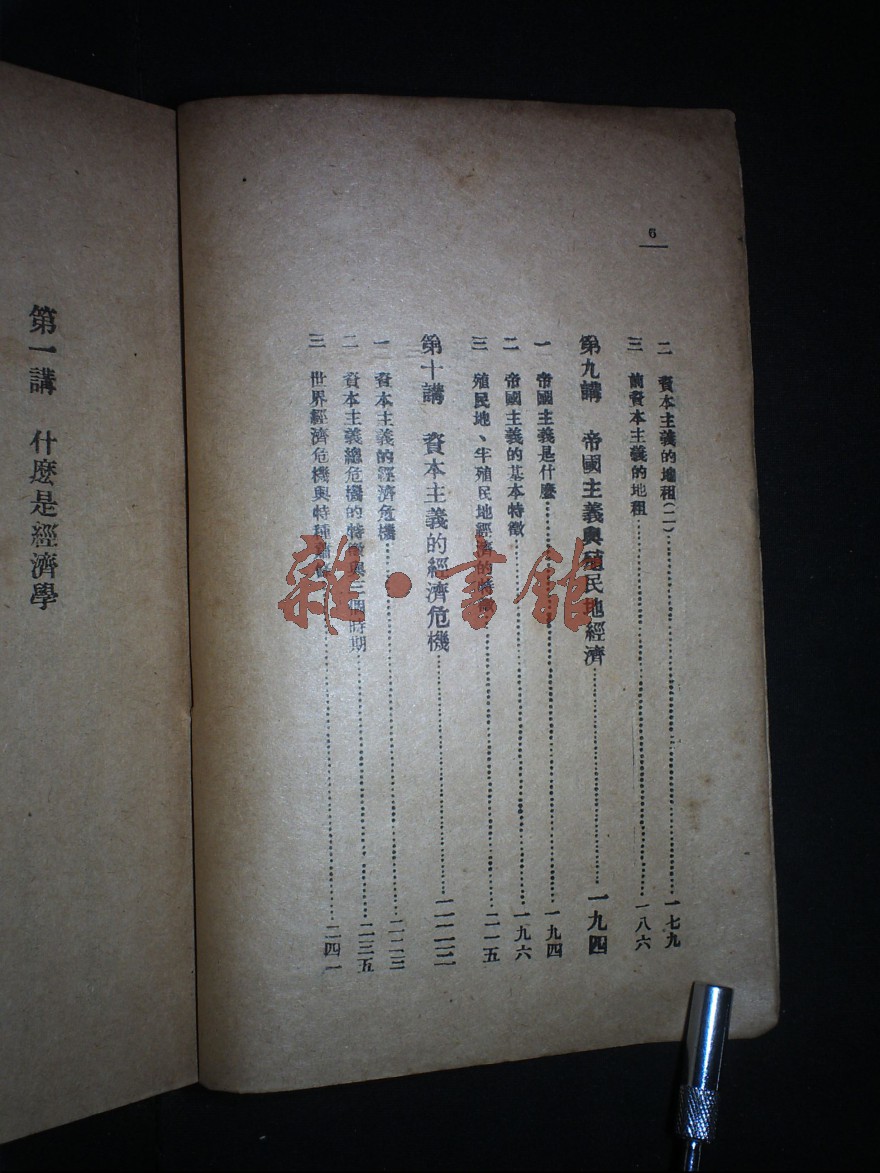 6
二 資本主義的地租(二)……一七九
三 前資本主義的地租……一八六
第九講 帝國主義與殖民地經濟……一九四
一 帝國主義是什麼……一九四
二 帝國主義的基本特徵……一九六
三 殖民地、半殖民地經濟的特徵……二一五
第十講 資本主義的經濟危機……二二三
一 資本主義的經濟危機……二二三
二 資本主義總危機的特徵與三個時期……二三五
三 世界經濟危機與特種蕭條……二四一
第一講 什麼是經濟學
雜·書館